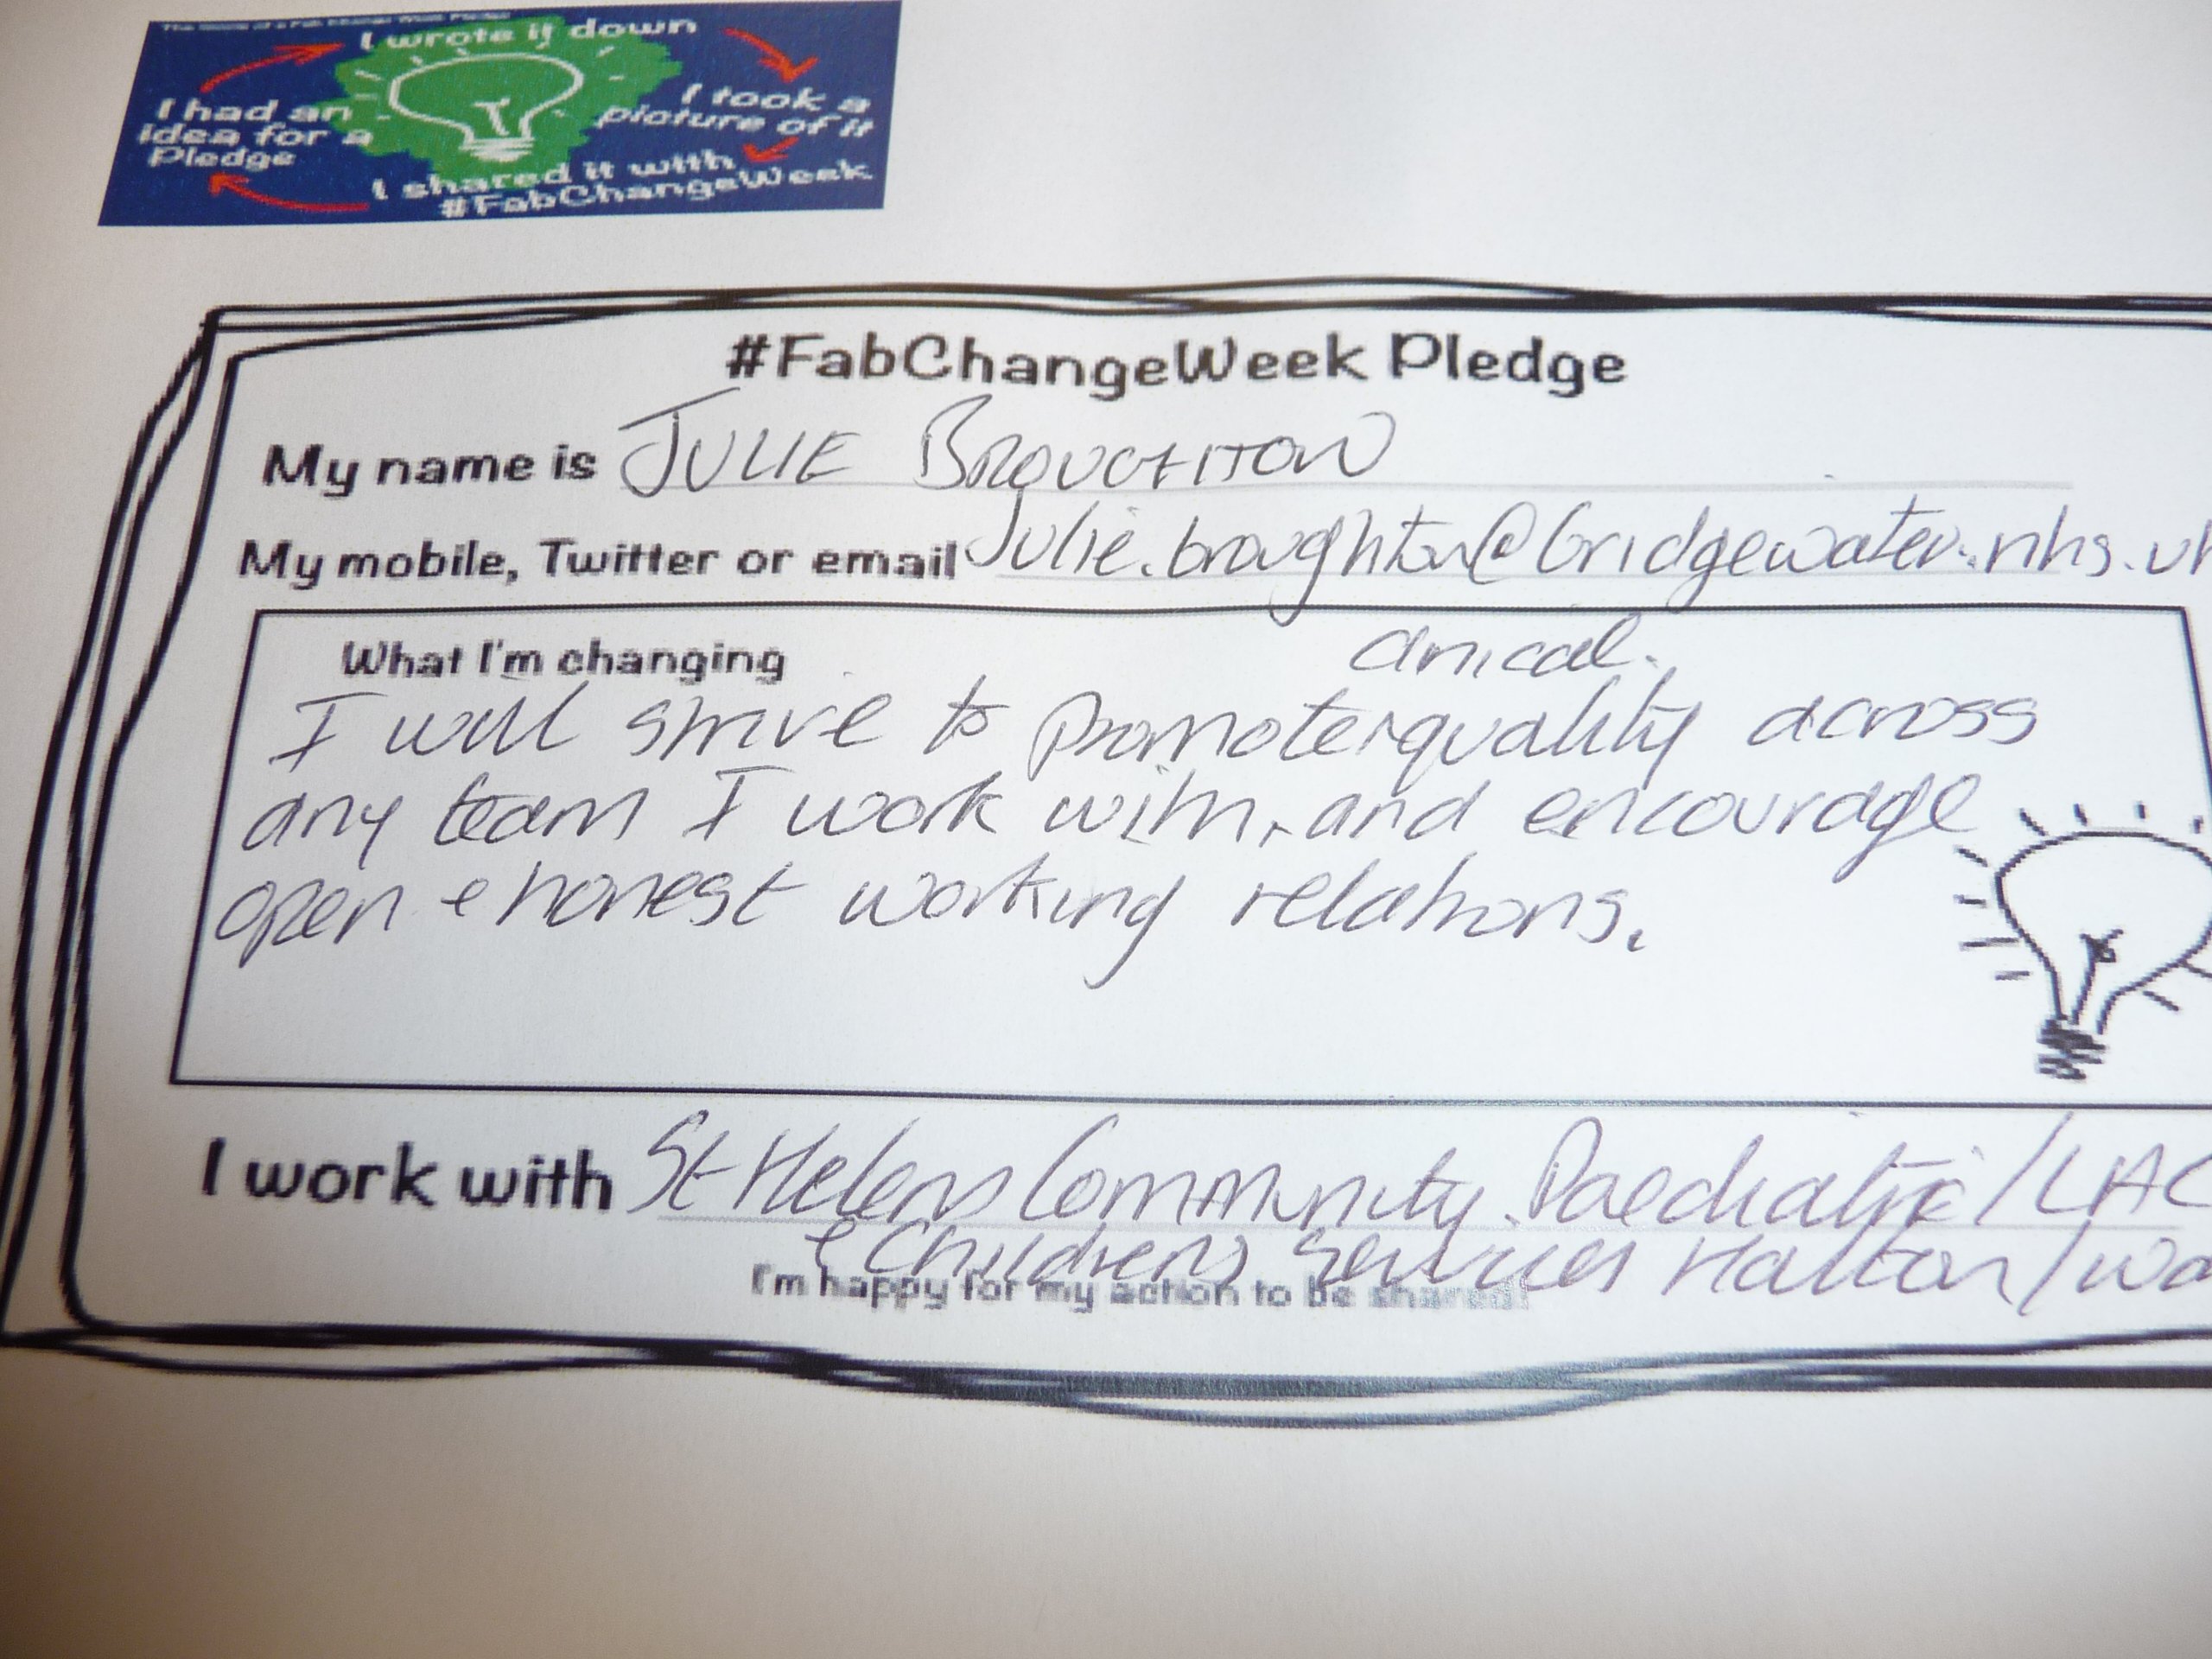 I wrote it down
I had an
idea for a
Pledge
I took a
picture of it
I shared it with
#FabChangeWeek
#FabChangeWeek Pledge
My name is JULIE BROUGHTON
My mobile, Twitter or email Julie.broughton@bridgewater.nhs.uk
What I'm changing
clinical
I will strive to promote quality across
any team I work with, and encourage
open & honest working relations.
I work with St Helens Community Paediatric/LAC
& Childrens Services Halton/
I'm happy for my action to be shared!